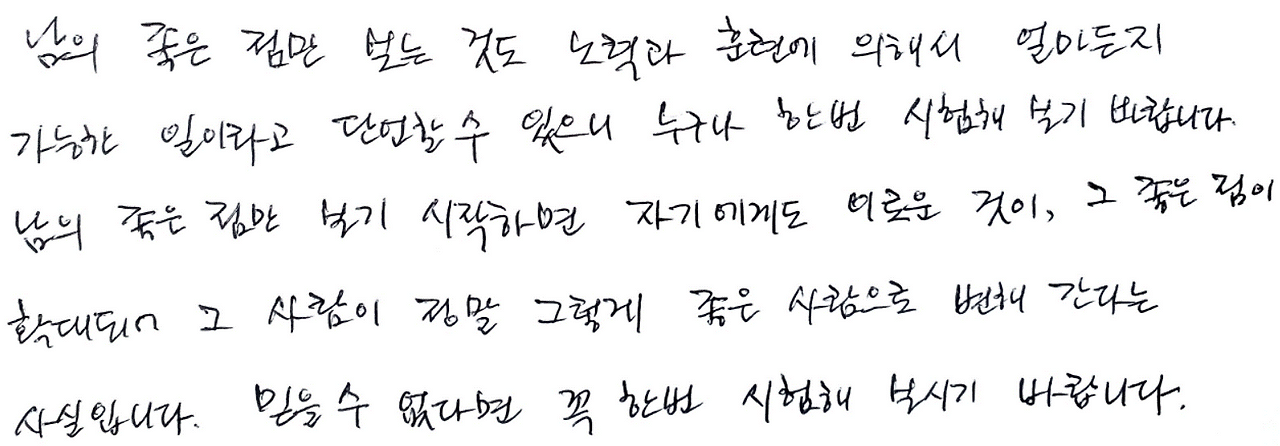 남의 좋은 점만 보는 것도 노력과 훈련에 의해서 얼마든지
가능한 일이라고 단언할 수 있으니 누구나 한번 시험해 보기 바랍니다.
남의 좋은 점만 보기 시작하면 자기에게도 이로운 것이, 그 좋은 점이
확대되어 그 사람이 정말 그렇게 좋은 사람으로 변해 간다는
사실입니다. 믿을 수 없다면 꼭 한번 시험해 보시기 바랍니다.